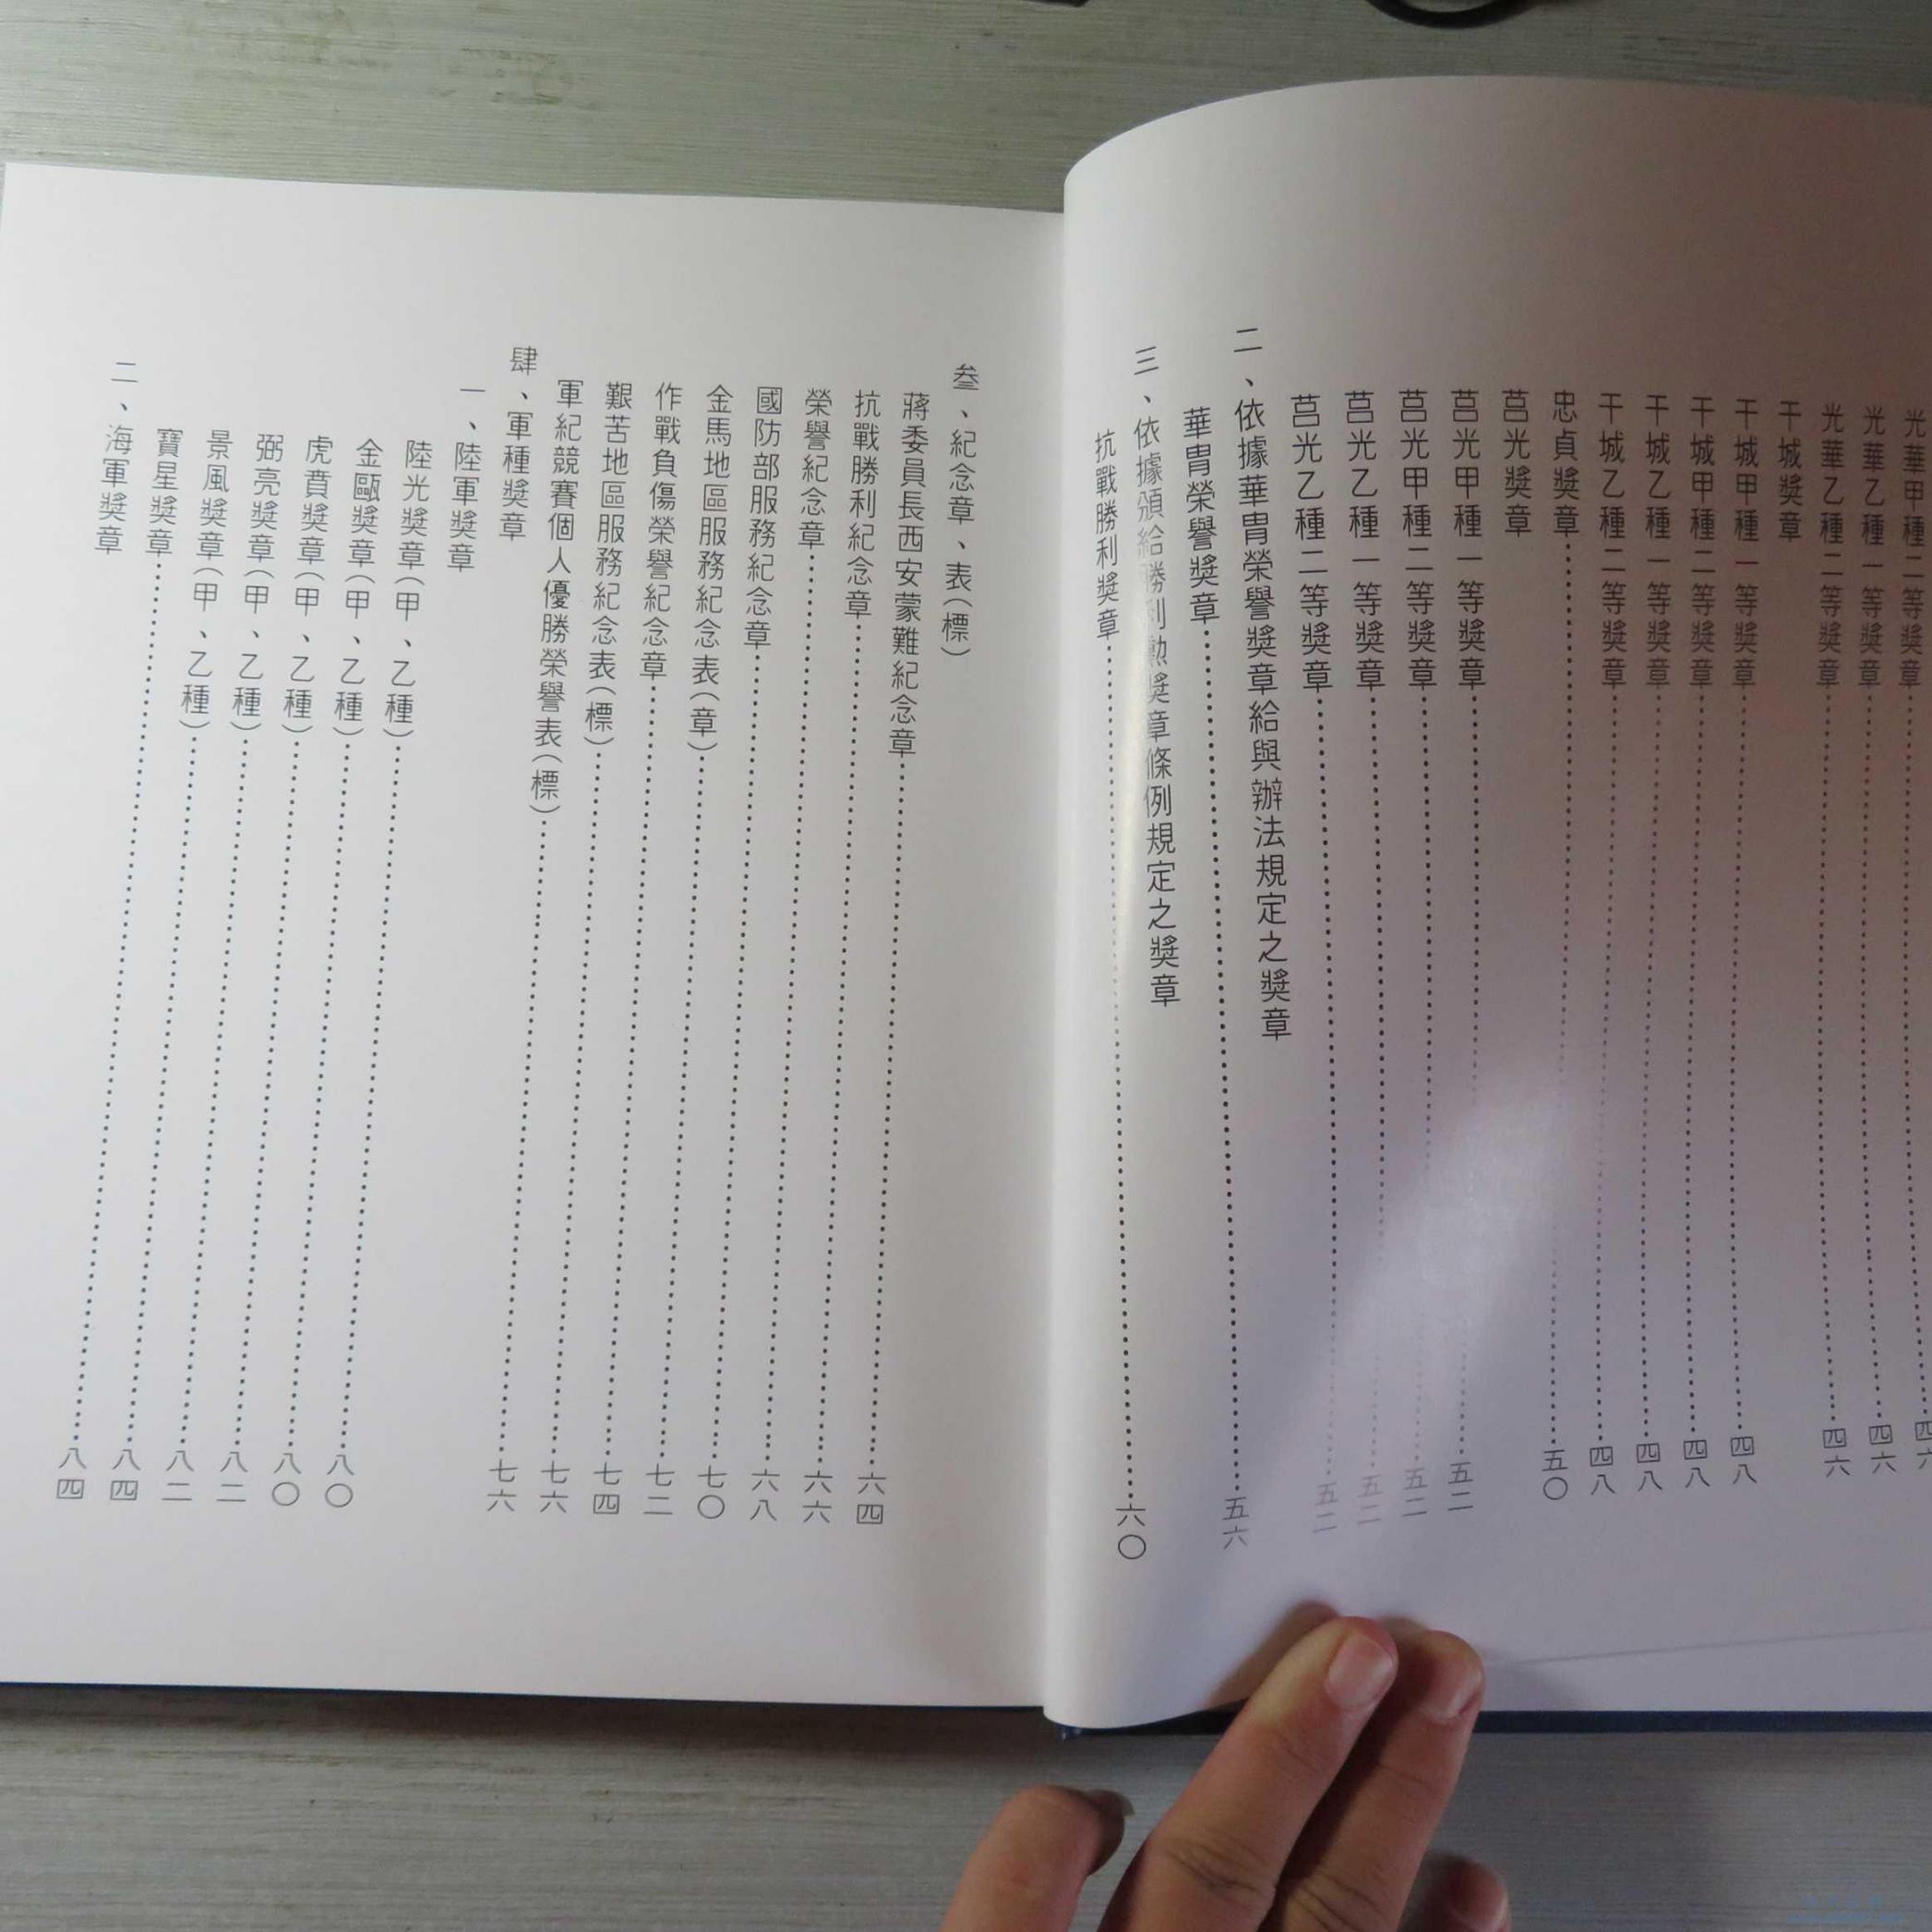 光華甲種二等獎章……四六
光華乙種一等獎章……四六
光華乙種二等獎章……四六
干城獎章
干城甲種一等獎章……四八
干城甲種二等獎章……四八
干城乙種一等獎章……四八
干城乙種二等獎章……四八
忠貞獎章……五〇
莒光獎章
莒光甲種一等獎章……五二
莒光甲種二等獎章……五二
莒光乙種一等獎章……五二
莒光乙種二等獎章……五二
二、依據華胄榮譽獎章給與辦法規定之獎章
華胄榮譽獎章……五六
三、依據頒給勝利勳獎章條例規定之獎章
抗戰勝利獎章……六〇
叁、紀念章、表(標)
蔣委員長西安蒙難紀念章……六四
抗戰勝利紀念章……六六
榮譽紀念章……六八
國防部服務紀念章……七〇
金馬地區服務紀念表(章)……七二
作戰負傷榮譽紀念章……七四
艱苦地區服務紀念表(標)……七六
軍紀競賽個人優勝榮譽表(標)……七六
肆、軍種獎章
一、陸軍獎章
陸光獎章(甲、乙種)……八〇
金甌獎章(甲、乙種)……八〇
虎賁獎章(甲、乙種)……八二
弼亮獎章(甲、乙種)……八二
景風獎章(甲、乙種)……八四
寶星獎章……八四
二、海軍獎章